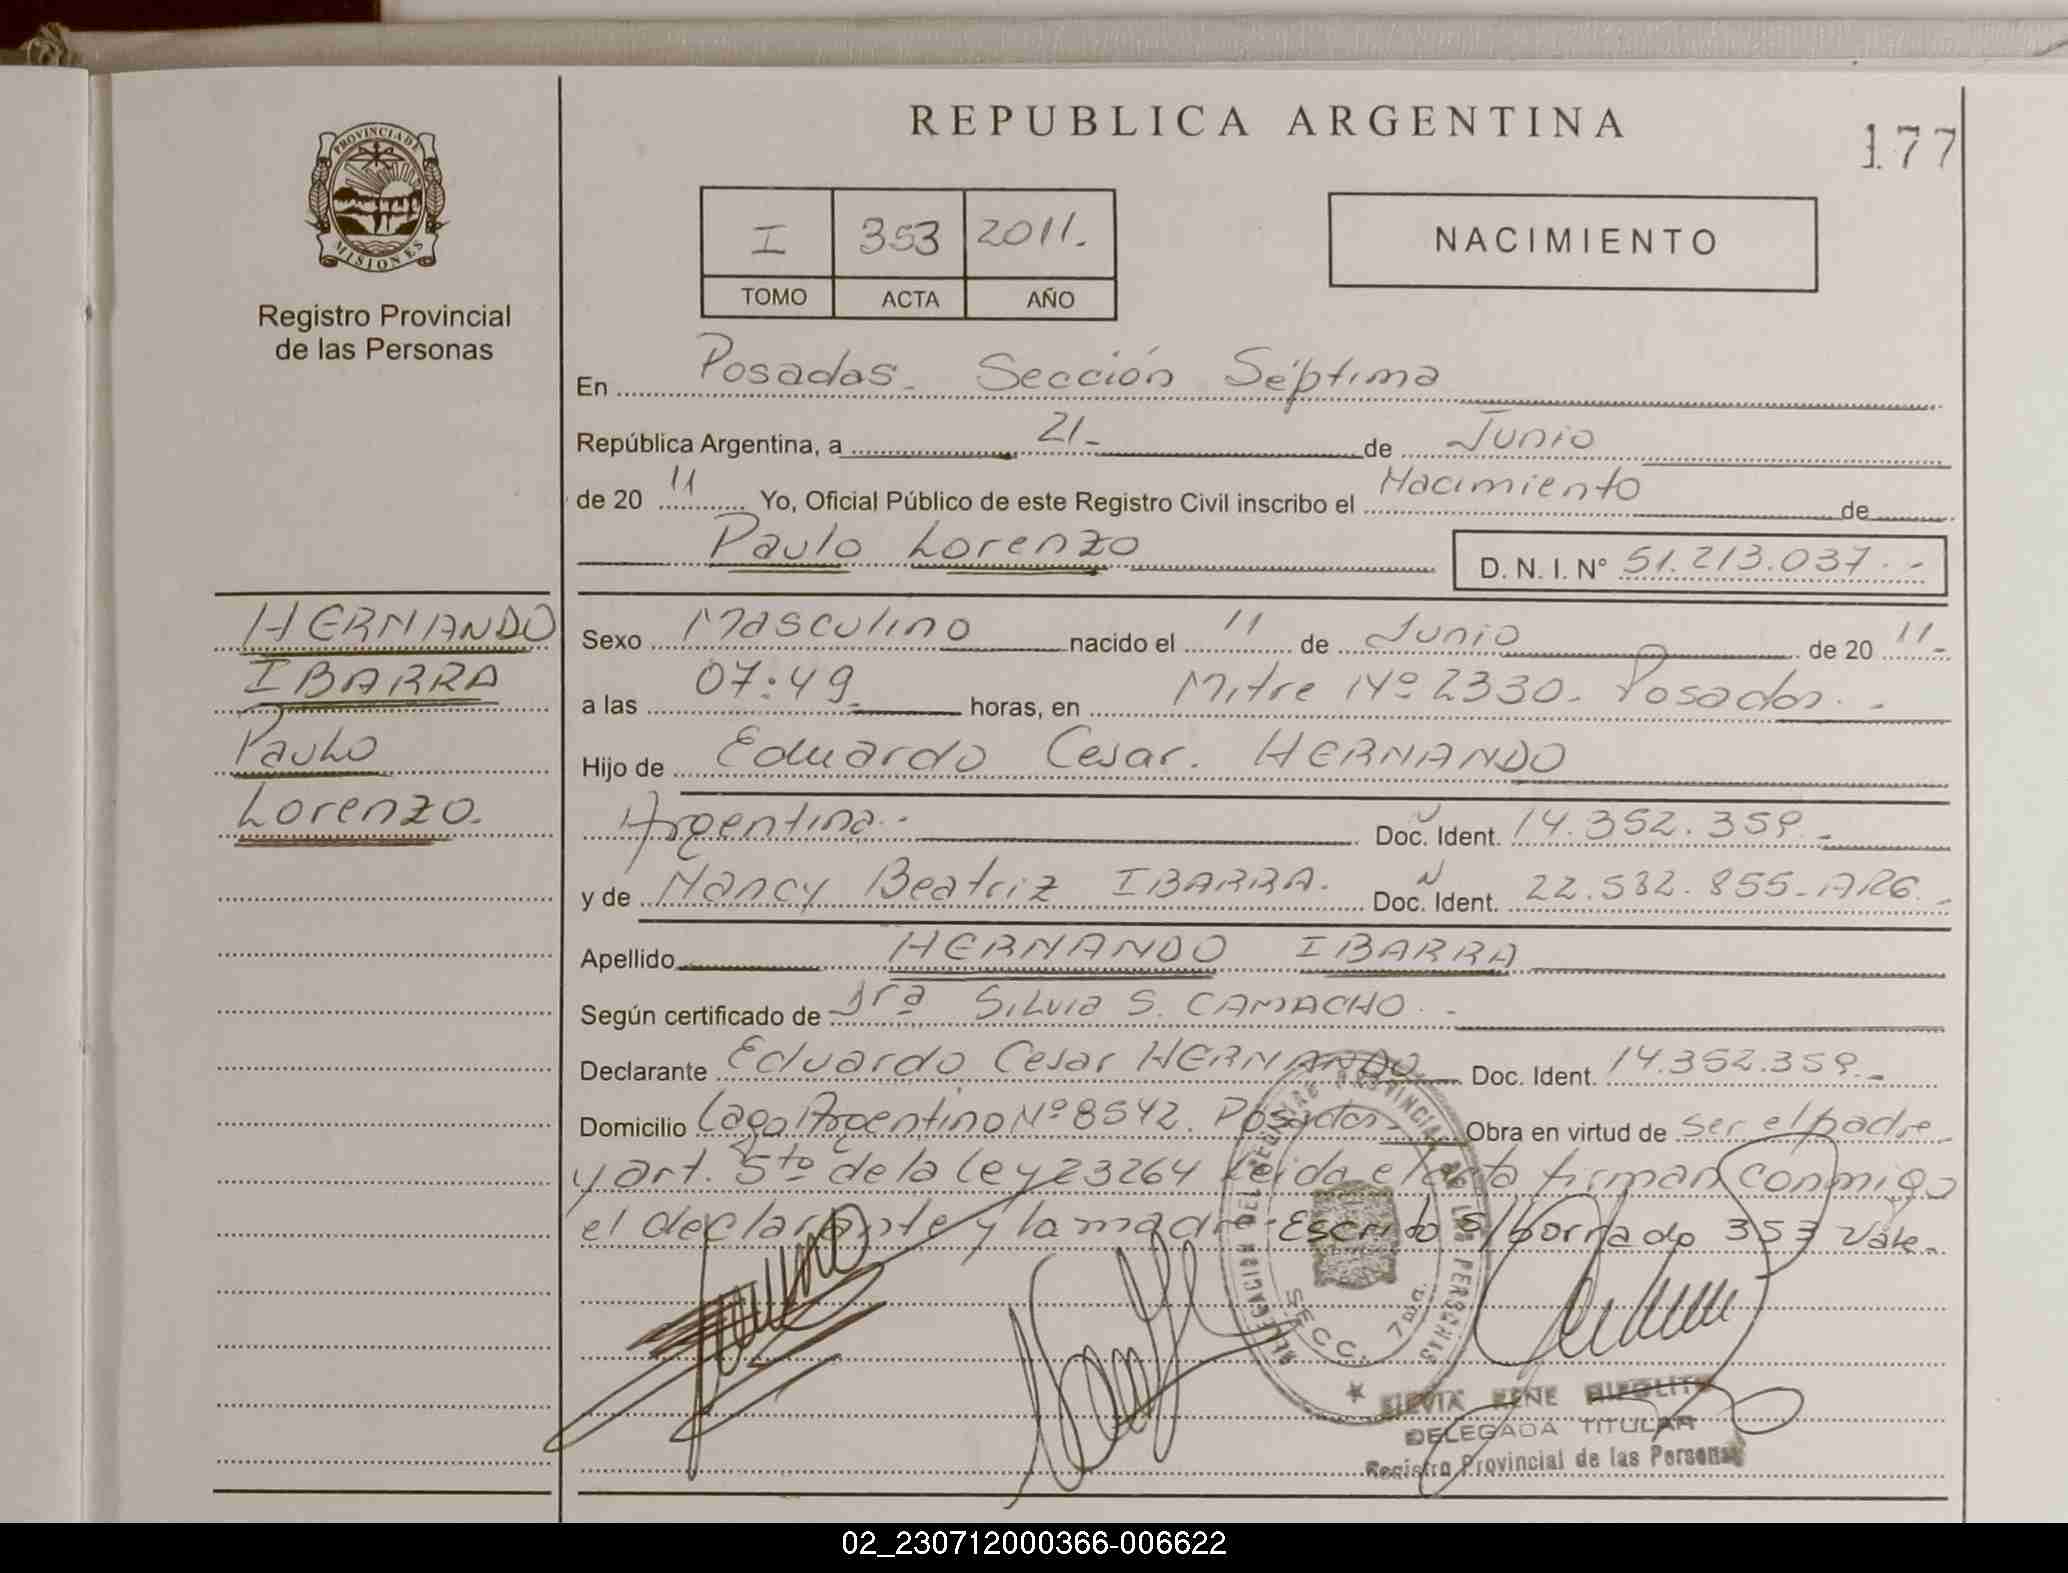 REPUBLICA ARGENTINA
177
PROVINCIA DE
MISIONES
Registro Provincial
de las Personas
I 353 2011.
TOMO ACTA AÑO
NACIMIENTO
En Posadas. Sección Séptima
República Argentina, a 21- de Junio
de 20 11 Yo, Oficial Público de este Registro Civil inscribo el Nacimiento de
Paulo Lorenzo D. N. I. N° 51.213.037.-
HERNANDO
IBARRA
Paulo
Lorenzo.
Sexo Masculino nacido el 11 de Junio de 20 11-
a las 07:49 horas, en Mitre Nº 2330. Posadas.-
Hijo de Eduardo Cesar. HERNANDO
Argentina.- Doc. Ident. 14.352.359.-
y de Nancy Beatriz IBARRA. Doc. Ident. 22.532.855-ARG.-
Apellido HERNANDO IBARRA
Según certificado de Silvia S. CAMACHO.-
Declarante Eduardo Cesar HERNANDO Doc. Ident. 14.352.359.-
Domicilio Lago Argentino Nº 8542. Posadas- Obra en virtud de ser el padre
y art. 5to de la Ley 23264 Leida el acta firman conmigo
el declarante y la madre-Escrito s/borrado 353 Vale.
DELEGACION DEL REGISTRO PROVINCIAL DE LAS PERSONAS
SECC. 7ma.
RENE HIPOLITO
DELEGADA TITULAR
Registro Provincial de las Personas
02_230712000366-006622